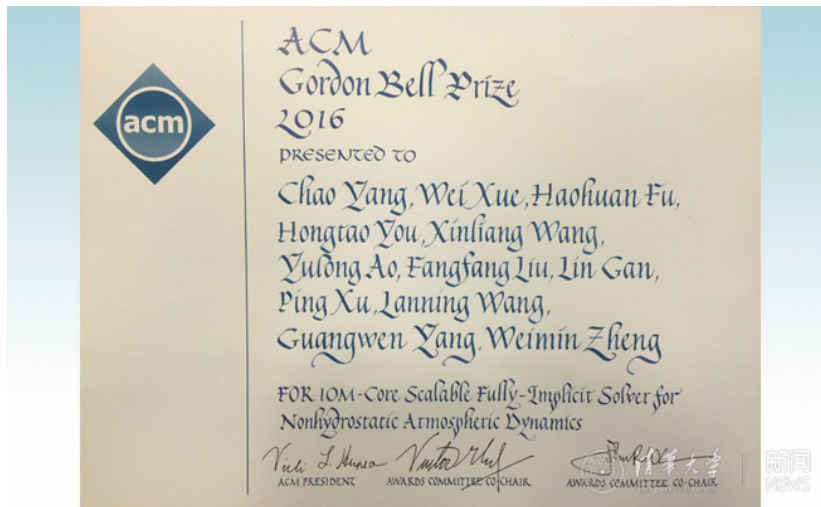 acm
ACM
Gordon Bell Prize
2016
PRESENTED TO
Chao Yang, Wei Xue, Haohuan Fu,
Hongtao You, Xinliang Wang,
Yulong Ao, Fangfang Liu, Lin Gan,
Ping Xu, Lanning Wang,
Guangwen Yang, Weimin Zheng
FOR 10M-Core Scalable Fully-Implicit Solver for
Nonhydrostatic Atmospheric Dynamics
ACM PRESIDENT AWARDS COMMITTEE CO-CHAIR AWARDS COMMITTEE CO-CHAIR
清华大学
新闻
NEWS